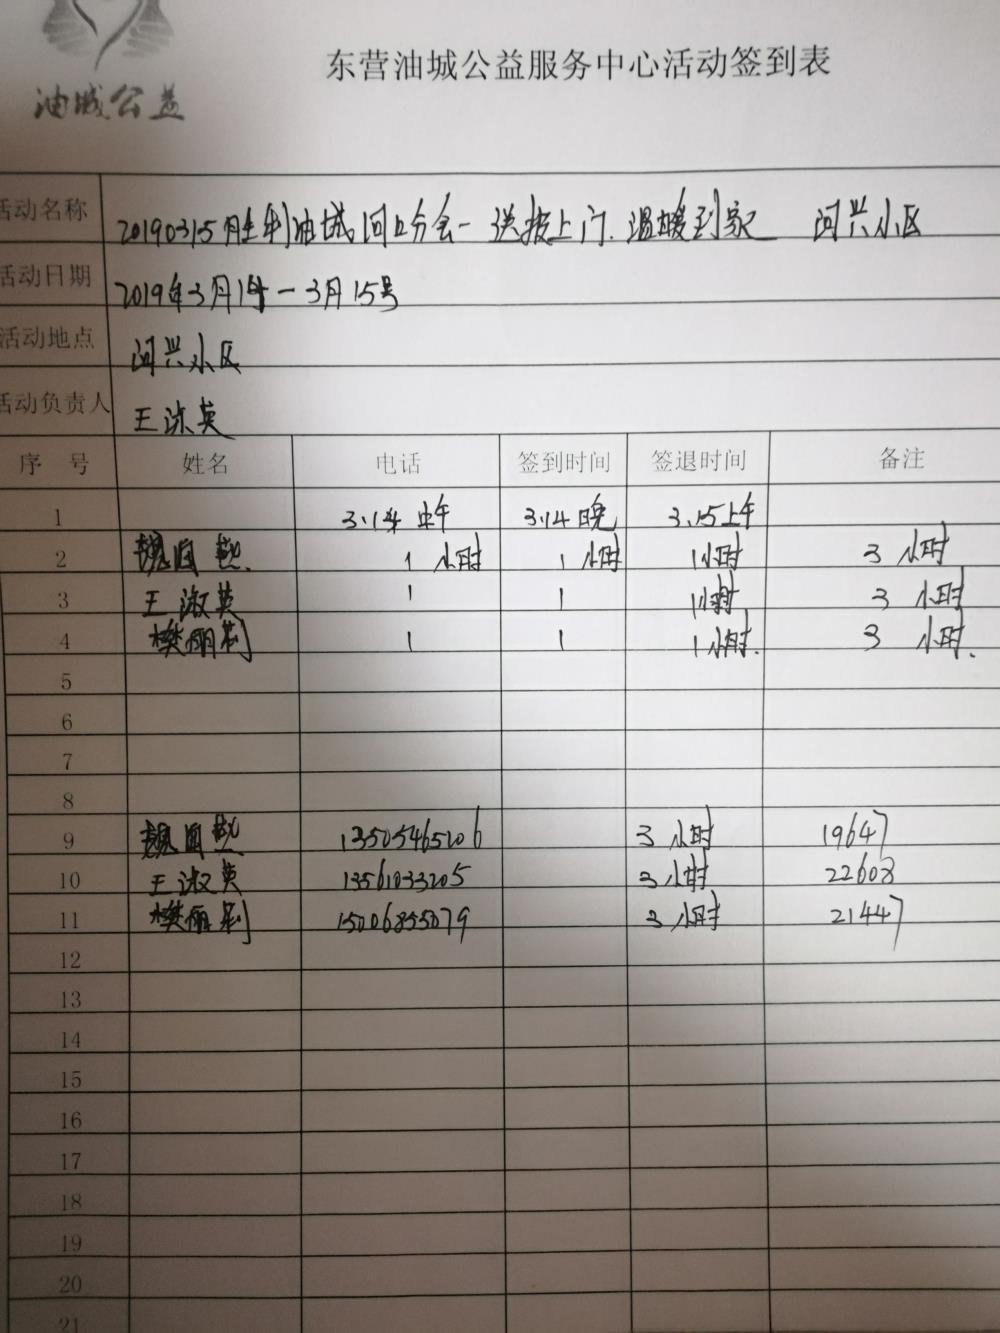 油城公益
东营油城公益服务中心活动签到表
活动名称 20190315胜利油城河口分会一送报上门.温暖到家 河兴小区
活动日期 2019年3月14-3月15号
活动地点 河兴小区
活动负责人 王淑英
序号 姓名 电话 签到时间 签退时间 备注
1 3.14 午 3.14晚 3.15上午
2 魏 1小时 1小时 1小时 3小时
3 王淑英 1 1 1小时 3小时
4 樊丽莉 1 1 1小时. 3小时.
5
6
7
8
9 魏 13505465206 3小时 19647
10 王淑英 13561033205 3小时 22608
11 樊丽莉 15006855079 3小时 21447
12
13
14
15
16
17
18
19
20
21